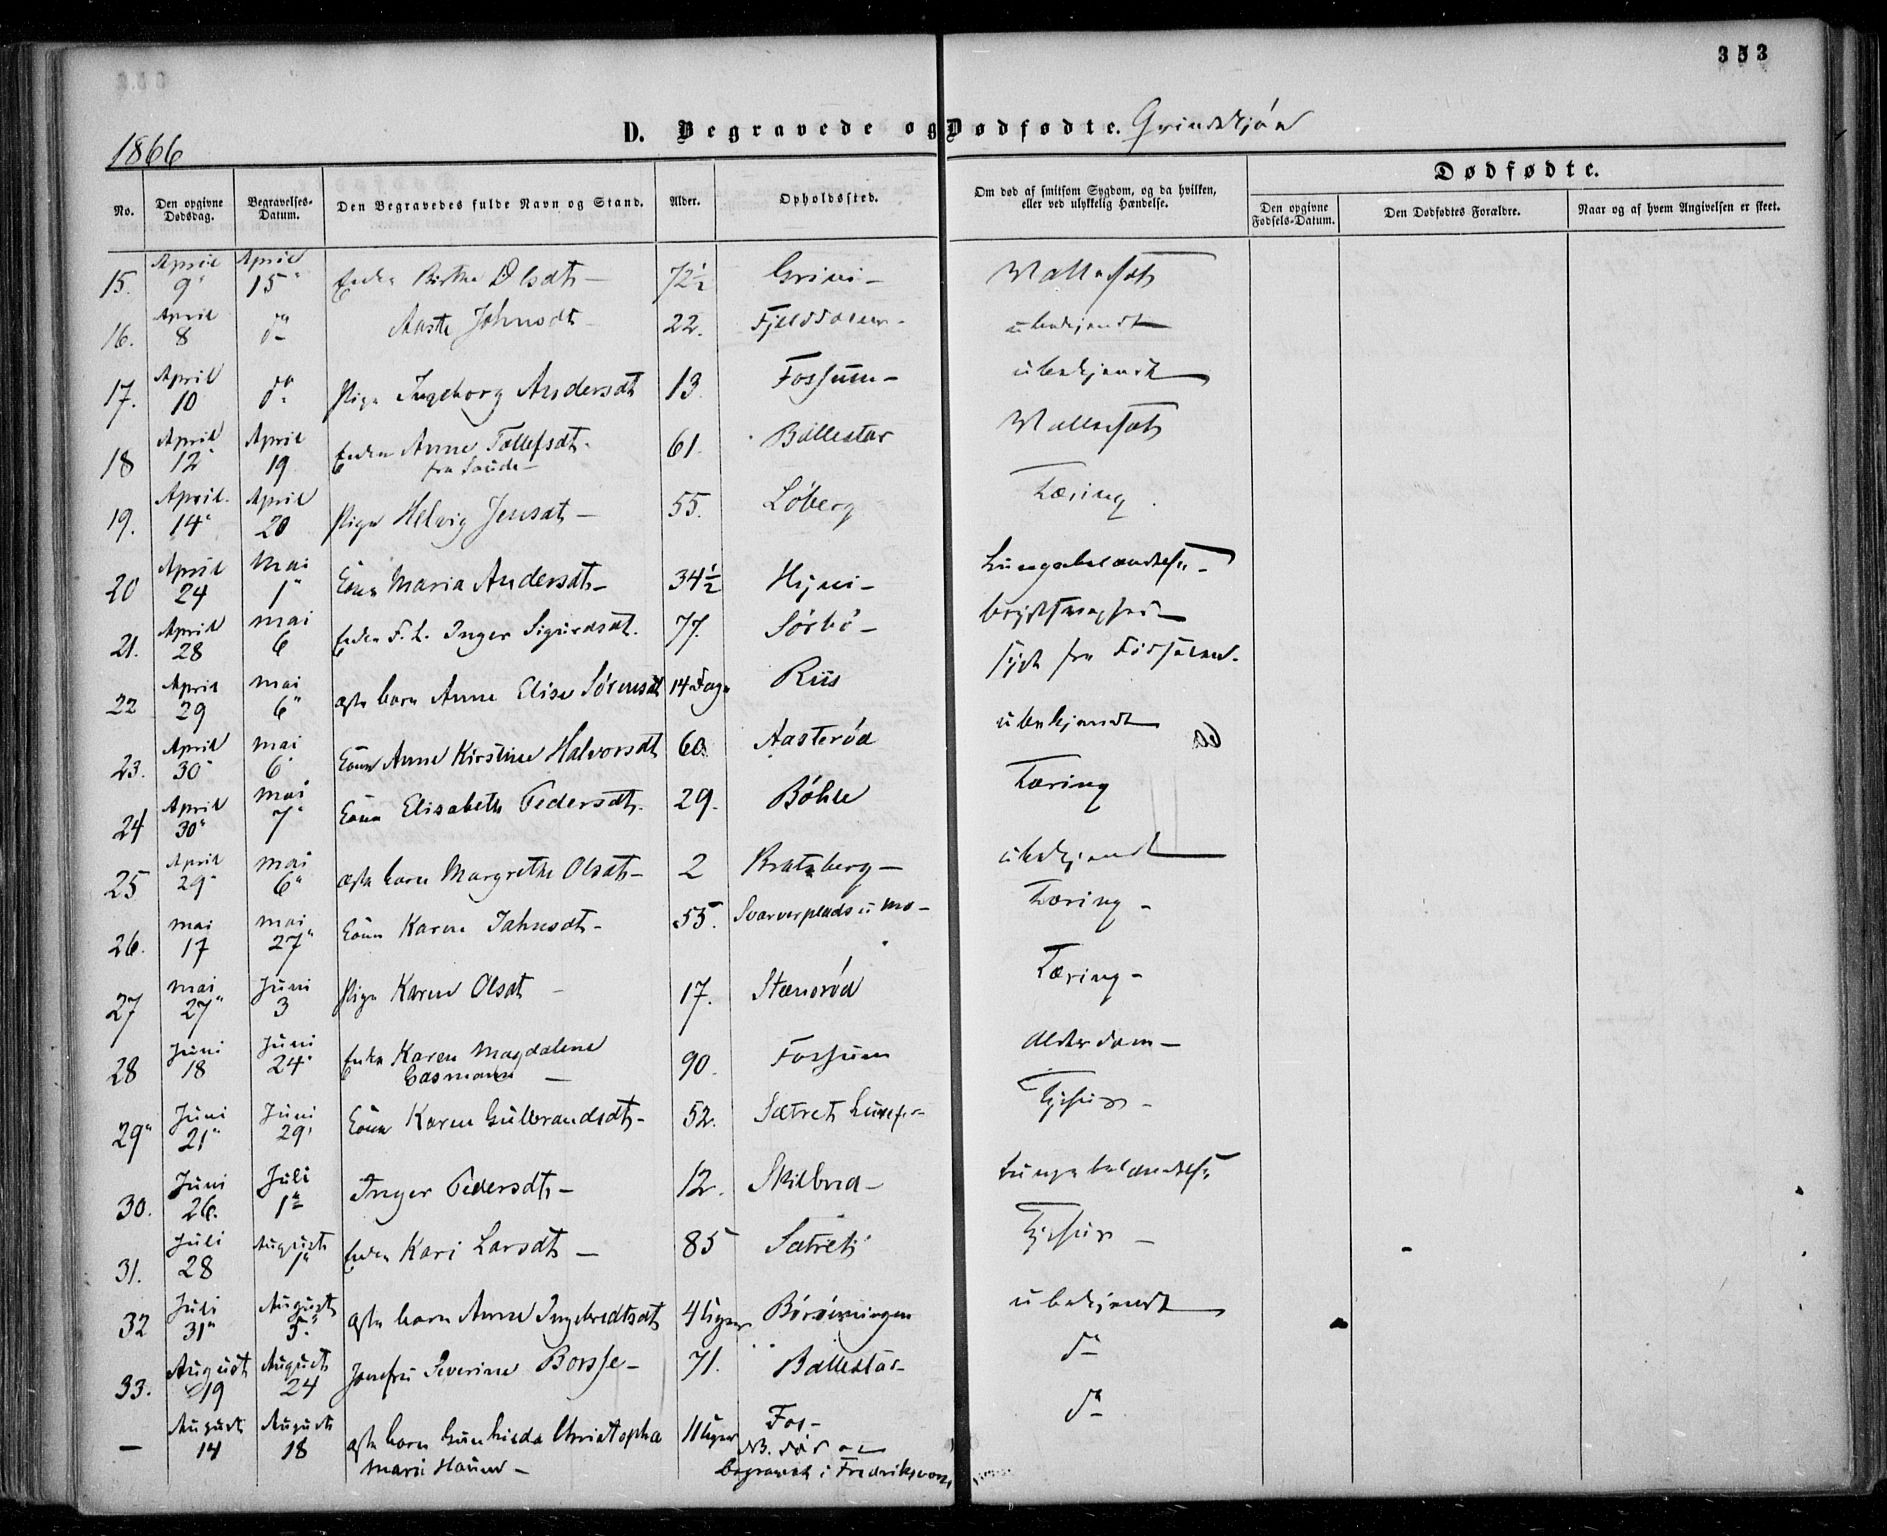 353
1866
D. Begravede og Dødfødte. Qvindekjøn
No.
Den opgivne Dødsdag.
Begravelses-Datum.
Den Begravedes fulde Navn og Stand.
Alder.
Opholdssted.
Om død af smitsom Sygdom, og da hvilken, eller ved ulykkelig Hændelse.
Dødfødte.
Den opgivne Fødsels-Datum.
Den Dødfødtes Forældre.
Naar og af hvem Angivelsen er skeet.
15. April 9 April 15 Enke Birthe Olsdtr 72½ Grini Vattersot
16. April 8 do Aaste Johnsdtr 22. ubekjendt
17. April 10 do Pige Ingeborg Andersdtr 13 Fossum ubekjendt
18 April 12 April 19 Enke Anne Tollefsdtr 61. Ballestar Vattersot
fra Saude
19. April 14 April 20 Pige Helvig Jensdtr 55. Løberg Tæring
20 April 24 Mai 1 Kone Maria Andersdtr 34½ Lungebetændelse
21. April 28 Mai 6 Enke F. L. Inger Sigurdsdt. 77. Sørbø
22 April 29 Mai 6 ægte barn Anne Elise Sørensdt 14 Dage Riis syk fra Fødselen
23. April 30 Mai 6 Kone Anne Kirstine Halvorsdt 60 Aasterød ubekjendt
24 April 30 Mai 7 Kone Elisabeth Pedersdtr 29. Bøhle Tæring
25 April 29 Mai 6 ægte barn Margrethe Olsdtr 2 Bratsberg ubekjendt
26. Mai 17 Mai 27 Kone Karen Jahnsdtr 55. Svarverplads u Mo Tæring
27 Mai 27 Juni 3 Pige Karen Olsdt 17. Stensrød Tæring
28 Juni 18 Juni 24 Enke Karen Magdalene 90. Fossum Alderdom
Casmann
29 Juni 21 Juni 29 Kone Karen Gulbrandsdtr 52. Sætret
30. Juni 26. Juli 1 Inger Pedersdtr 12. Skilbred Lungebetændelse
31. Juli 28 August 1 Enke Kari Larsdtr 85 Sætret
32 Juli 31 August 5. ægte barn Anne Ingebredtsdt 4 Uger ubekjendt
33. August 19 August 24 Jomfru Severine Borsse 71. Ballestar do
– August 14 August 18 ægte barn Gunhilda Christopha 11 Uger Fos do
Marie Hauen NB. død og
begravet i Fredriksværn